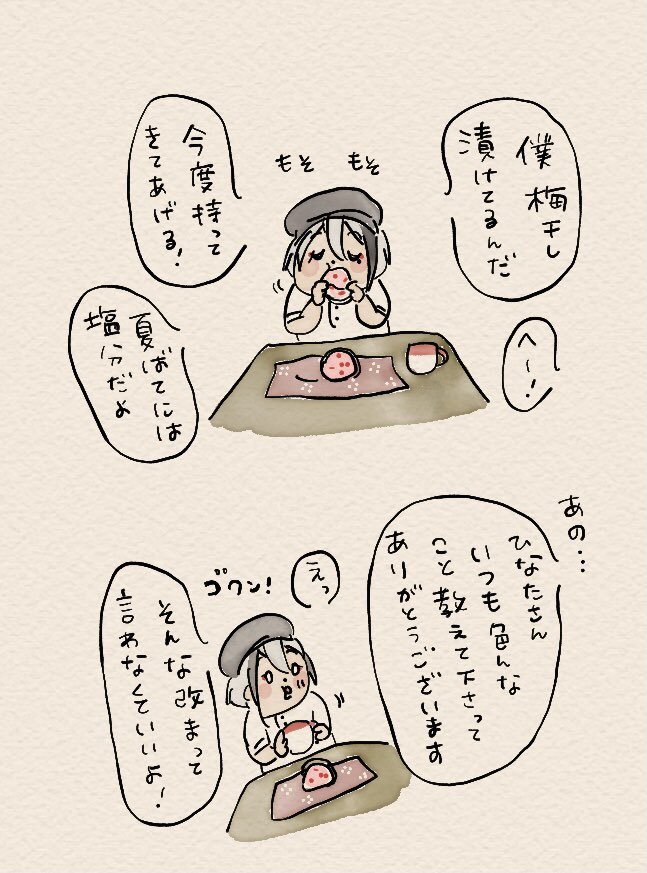 僕梅干し
漬けてるんだ
へ〜!
もそ
もそ
今度持って
きてあげる!
夏ばてには
塩分だよ
あの…
ひなたさん
いつも色んな
こと教えて下さって
ありがとうございます
えっ
ゴクン!
そんな改まって
言わなくていいよ!